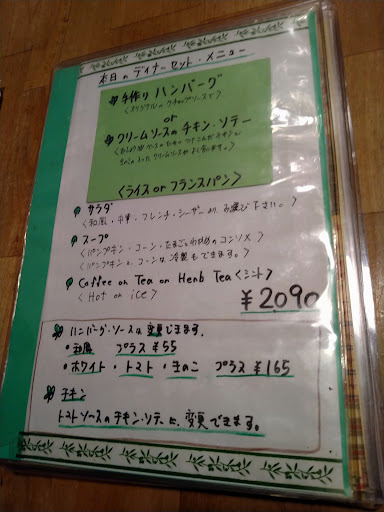 本日のディナーセット・メニュー
手作り ハンバーグ
<オリジナルのケチャップソースで>
or
クリームソースのチキン・ソテー
クリームソースがよく合います。>
<ライス or フランスパン>
サラダ
<和風・中華・フレンチ・シーザーより お選び下さい。>
スープ
<パンプキン・コーン・たまごとわかめのコンソメ>
<パンプキンと、コーンは、冷製もできます。>
Coffee or Tea or Herb Tea <ミント>
<Hot or ice>
¥2,090
ハンバーグ・ソースは変更できます。
・和風 プラス ¥55
・ホワイト・トマト・きのこ プラス ¥165
チキン
トマトソースのチキン・ソテーに、変更できます。